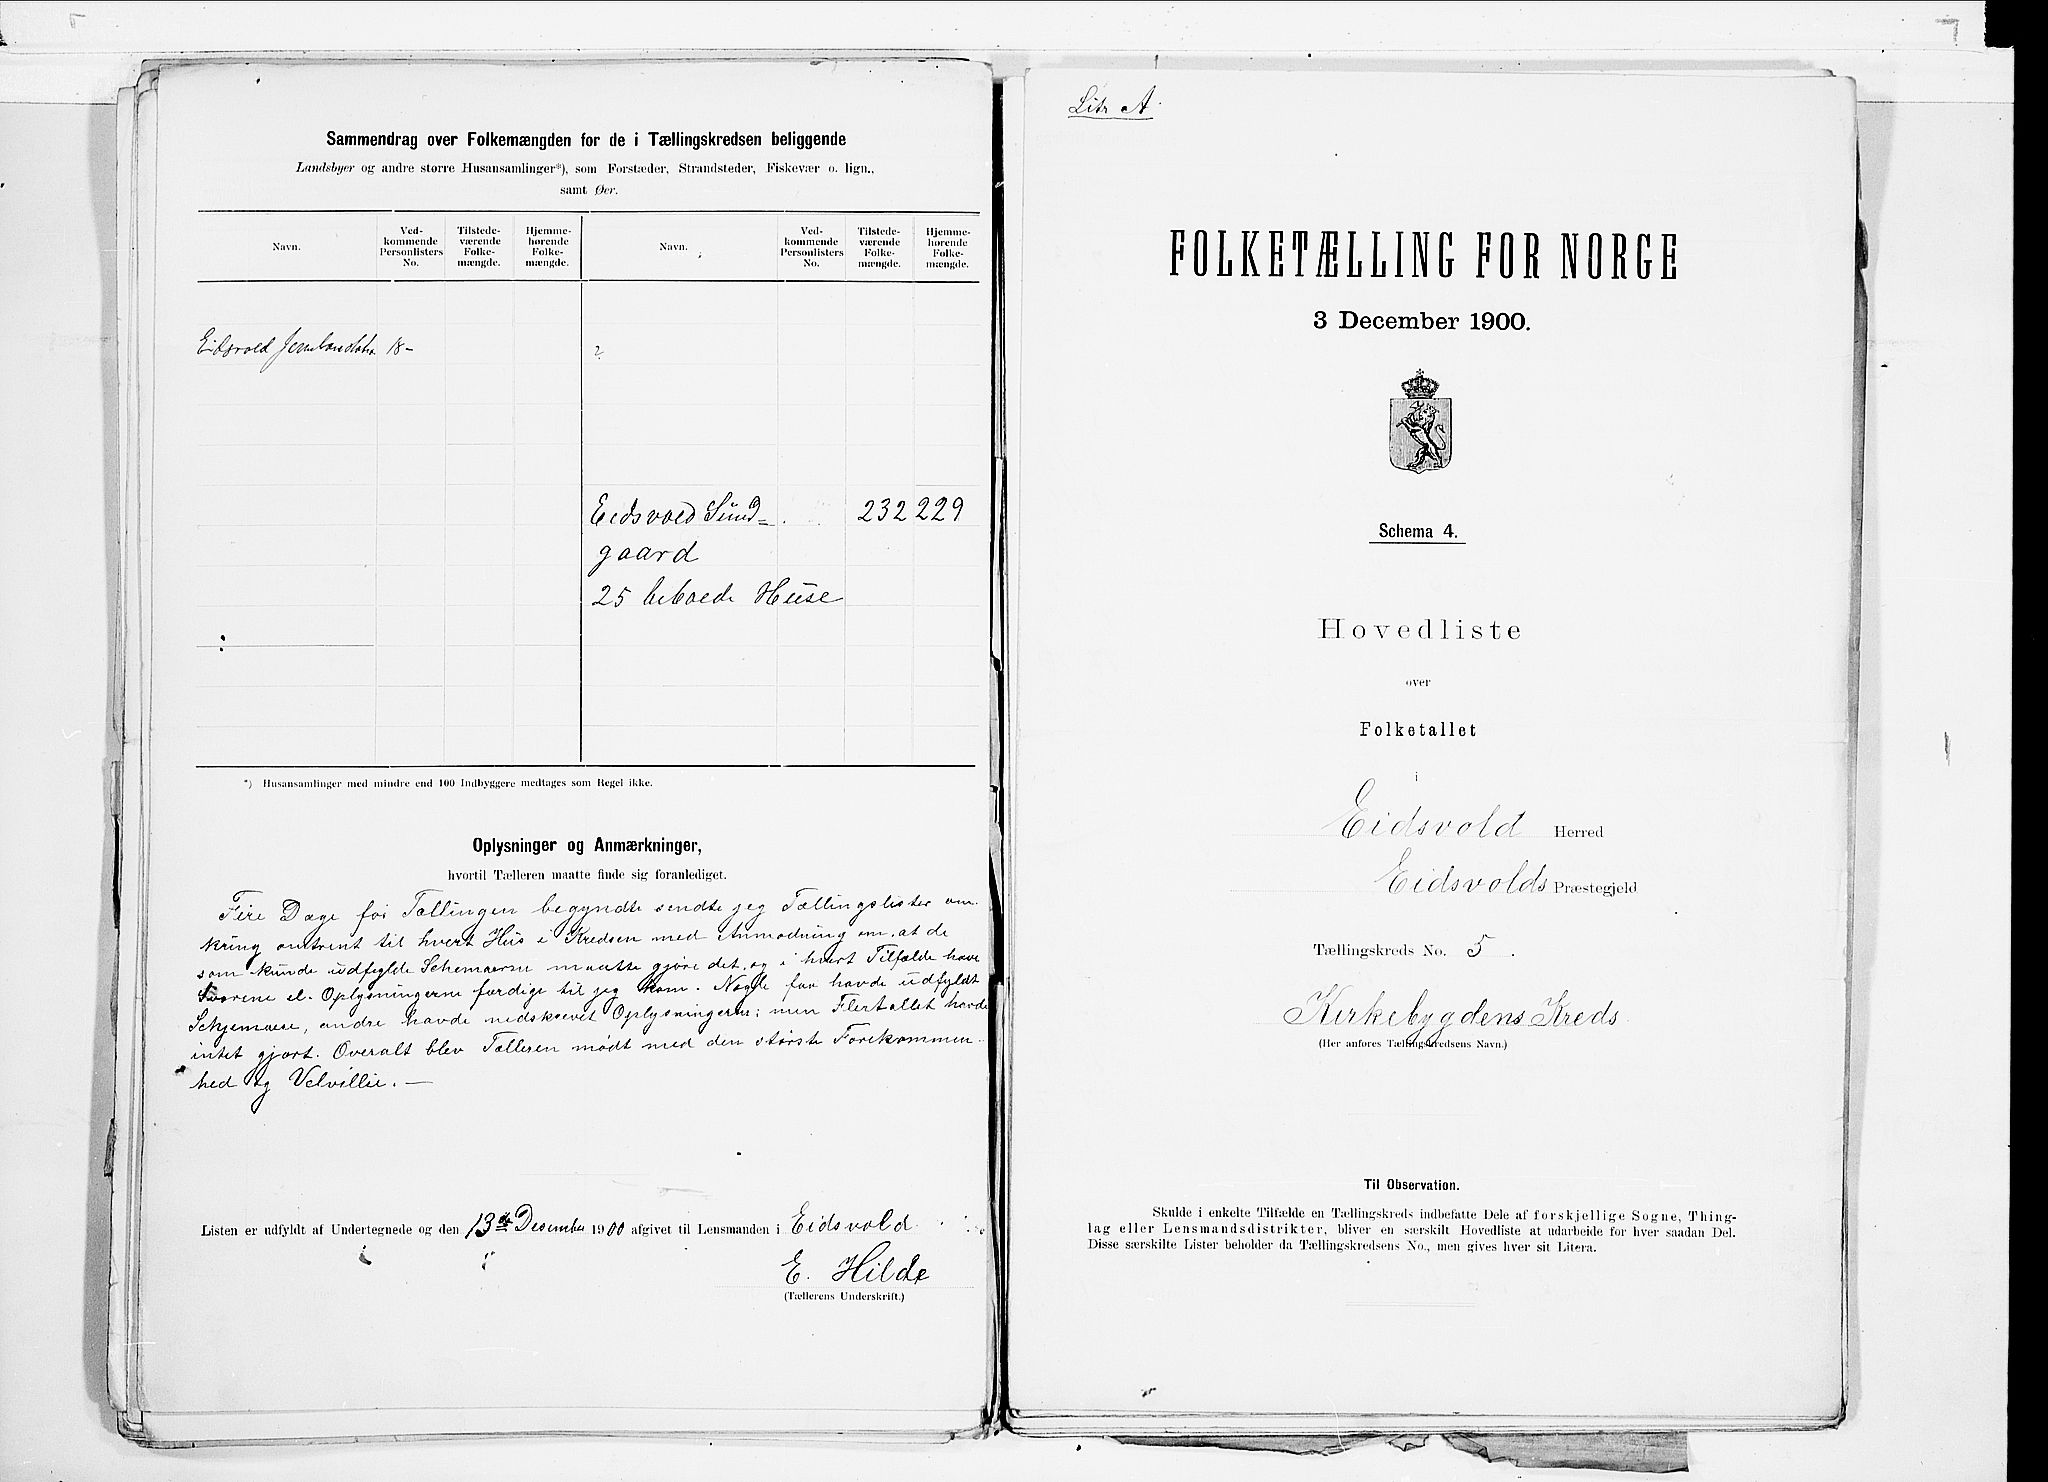 Sammendrag over Folkemængden for de i Tællingskredsen beliggende
Landsbyer og andre større Husansamlinger*), som Forstæder, Strandsteder, Fiskevær o. lign.,
samt Øer.
Navn.
Ved-
kommende
Personlisters
No.
Tilstede-
værende
Folke-
mængde.
Hjemme-
hørende
Folke-
mængde.
Navn.
Ved-
kommende
Personlisters
No.
Tilstede-
værende
Folke-
mængde.
Hjemme-
hørende
Folke-
mængde.
Eidsvold 18-
?
Eidsvold Sund= 232 229
gaard
25 beboede Huse
*) Husansamlinger med mindre end 100 Indbyggere medtages som Regel ikke.
Oplysninger og Anmærkninger,
hvortil Tælleren maatte finde sig foranlediget.
Fire Dage før Tællingen begyndte sendte jeg Tællingslister om-
kring omtrent til hvert Hus i Kredsen med Anmodning om, at de
som kunde udfylde Schemaerne maatte gjøre det, og i hvert Tilfælde have
Svarene el. Oplysningerne færdige til jeg kom. Nogle faa havde udfyldt
Schemaene, andre havde nedskrevet Oplysningerne; men Flertallet havde
intet gjort. Overalt blev Tælleren mødt med den største Forekommen-
hed og Velvillie. —
Listen er udfyldt af Undertegnede og den 13de Desember 1900 afgivet til Lensmanden i Eidsvold
E. Hilde
(Tællerens Underskrift.)
Litr A.
FOLKETÆLLING FOR NORGE
3 December 1900.
Schema 4.
Hovedliste
over
Folketallet
i
Eidsvold Herred
Eidsvolds Præstegjeld
Tællingskreds No. 5.
Kirkebygdens Kreds
(Her anføres Tællingskredsens Navn.)
Til Observation.
Skulde i enkelte Tilfælde en Tællingskreds indbefatte Dele af forskjellige Sogne, Thing-
lag eller Lensmandsdistrikter, bliver en særskilt Hovedliste at udarbeide for hver saadan Del.
Disse særskilte Lister beholder da Tællingskredsens No., men gives hver sit Litera.